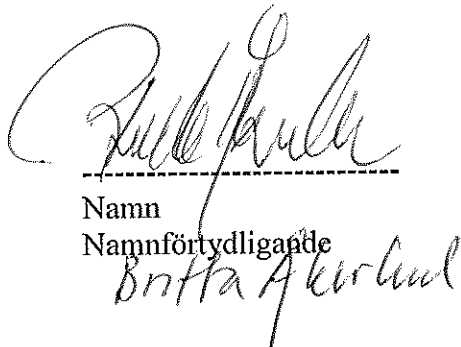 Namn
Namnförtydligande
Britta Åkerlund